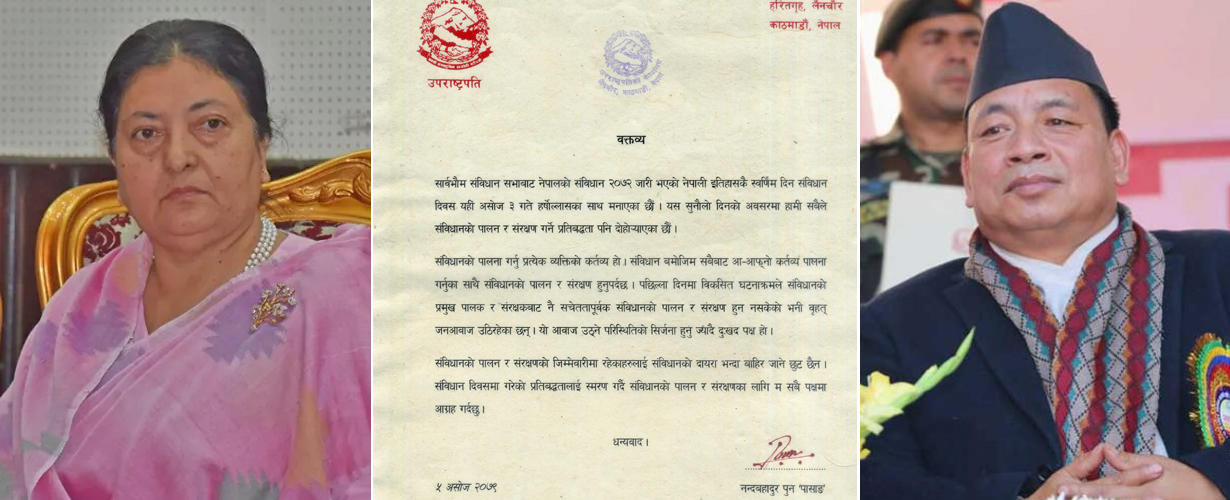 उपराष्ट्रपति
हरितगृह, लैनचौर
काठमाडौं, नेपाल
वक्तव्य
सार्वभौम संविधान सभाबाट नेपालको संविधान २०७२ जारी भएको नेपाली इतिहासकै स्वर्णिम दिन संविधान
दिवस यही असोज ३ गते हर्षोल्लासका साथ मनाएका छौं । यस सुनौलो दिनको अवसरमा हामी सबैले
संविधानको पालन र संरक्षण गर्ने प्रतिबद्धता पनि दोहोऱ्याएका छौं ।
संविधानको पालना गर्नु प्रत्येक व्यक्तिको कर्तव्य हो । संविधान बमोजिम सबैबाट आ-आफ्नो कर्तव्य पालना
गर्नुका साथै संविधानको पालन र संरक्षण हुनुपर्दछ । पछिल्ला दिनमा विकसित घटनाक्रमले संविधानको
प्रमुख पालक र संरक्षकबाट नै सचेततापूर्वक संविधानको पालन र संरक्षण हुन नसकेको भनी वृहत्
जनआवाज उठिरहेका छन् । यो आवाज उठ्ने परिस्थितिको सिर्जना हुनु ज्यादै दुःखद पक्ष हो ।
संविधानको पालन र संरक्षणको जिम्मेवारीमा रहेकाहरुलाई संविधानको दायरा भन्दा बाहिर जाने छुट छैन ।
संविधान दिवसमा गरेको प्रतिबद्धतालाई स्मरण गर्दै संविधानको पालन र संरक्षणका लागि म सबै पक्षमा
आग्रह गर्दछु ।
धन्यवाद ।
५ असोज २०७९
नन्दबहादुर पुन 'पासाङ'